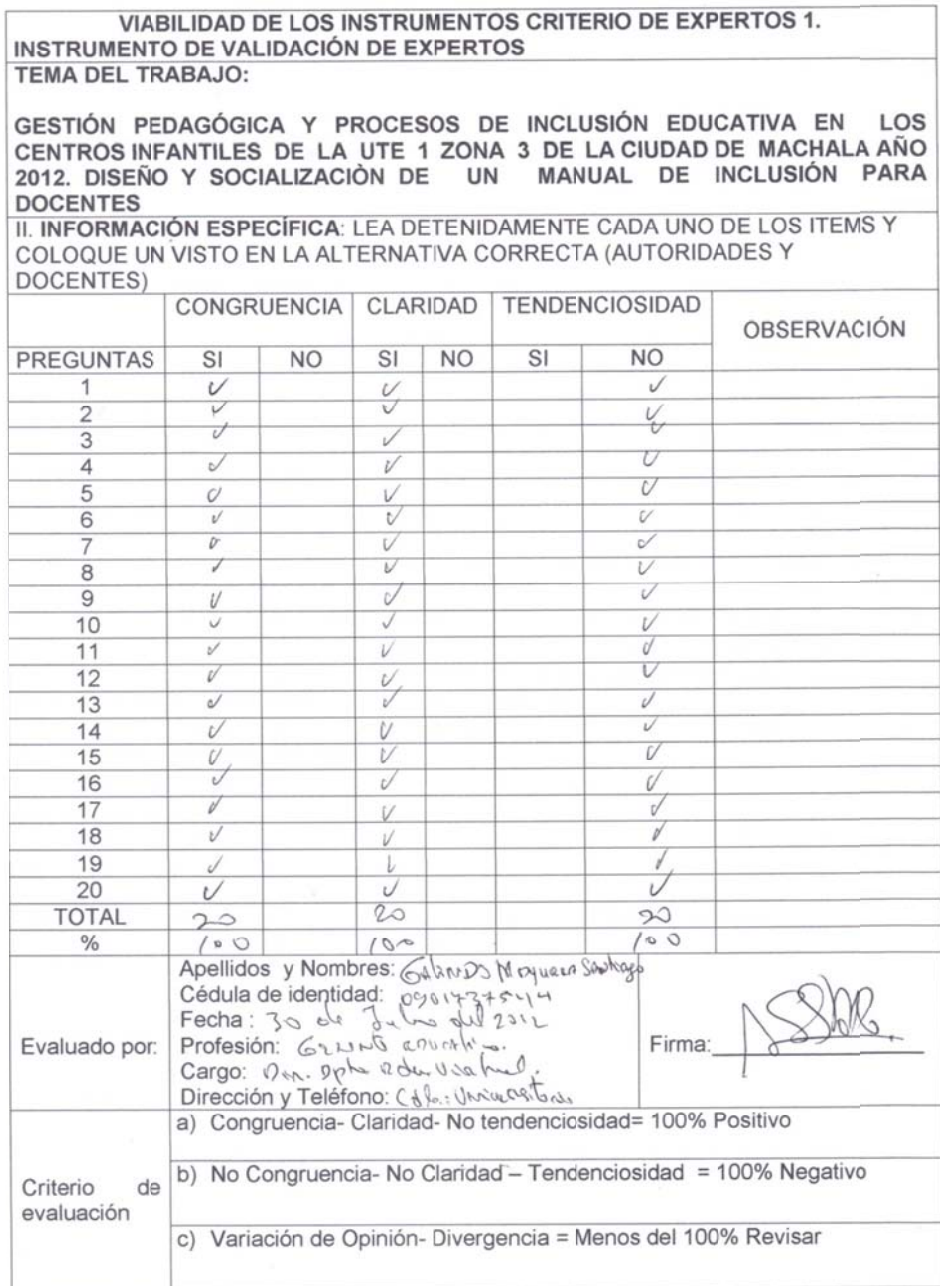 VIABILIDAD DE LOS INSTRUMENTOS CRITERIO DE EXPERTOS 1.
INSTRUMENTO DE VALIDACIÓN DE EXPERTOS
TEMA DEL TRABAJO:
GESTIÓN PEDAGÓGICA Y PROCESOS DE INCLUSIÓN EDUCATIVA EN LOS
CENTROS INFANTILES DE LA UTE 1 ZONA 3 DE LA CIUDAD DE MACHALA AÑO
2012. DISEÑO Y SOCIALIZACIÒN DE UN MANUAL DE INCLUSIÓN PARA
DOCENTES
II. INFORMACIÓN ESPECÍFICA: LEA DETENIDAMENTE CADA UNO DE LOS ITEMS Y
COLOQUE UN VISTO EN LA ALTERNATIVA CORRECTA (AUTORIDADES Y
DOCENTES)
CONGRUENCIA CLARIDAD TENDENCIOSIDAD OBSERVACIÓN
PREGUNTAS SI NO SI NO SI NO
1 ✓ ✓ ✓
2 ✓ ✓ ✓
3 ✓ ✓ ✓
4 ✓ ✓ ✓
5 ✓ ✓ ✓
6 ✓ ✓ ✓
7 ✓ ✓ ✓
8 ✓ ✓ ✓
9 ✓ ✓ ✓
10 ✓ ✓ ✓
11 ✓ ✓ ✓
12 ✓ ✓ ✓
13 ✓ ✓ ✓
14 ✓ ✓ ✓
15 ✓ ✓ ✓
16 ✓ ✓ ✓
17 ✓ ✓ ✓
18 ✓ ✓ ✓
19 ✓ ✓ ✓
20 ✓ ✓ ✓
TOTAL 20 20 20
% 100 100 100
Evaluado por:
Apellidos y Nombres: Galindo Mosquera Santiago
Cédula de identidad:
Fecha: 30 de Julio del 2012
Profesión:
Cargo:
Dirección y Teléfono:
Firma:
Criterio de
evaluación
a) Congruencia- Claridad- No tendenciosidad= 100% Positivo
b) No Congruencia- No Claridad – Tendenciosidad = 100% Negativo
c) Variación de Opinión- Divergencia = Menos del 100% Revisar